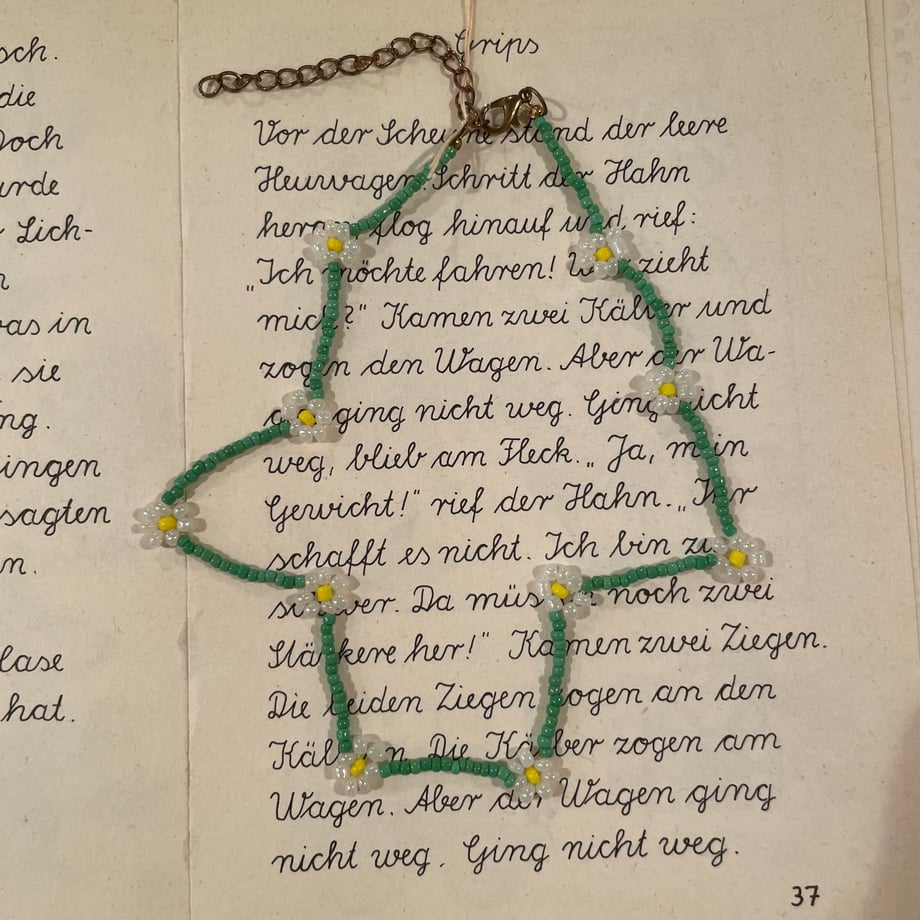 sch.
die
Doch
urde
Lich-
n
was in
sie
ng.
ingen
sagten
n.
lase
hat.
Grips
Vor der Scheune stand der leere
Heuwagen. Schritt der Hahn
heran, flog hinauf und rief:
„Ich möchte fahren! Wer zieht
mich?" Kamen zwei Kälber und
zogen den Wagen. Aber der Wa-
gen ging nicht weg. Ging nicht
weg, blieb am Fleck. „Ja, mein
Gewicht!" rief der Hahn. „Ihr
schafft es nicht. Ich bin zu
schwer. Da müssen noch zwei
Stärkere her!" Kamen zwei Ziegen.
Die beiden Ziegen zogen an den
Kälbern. Die Kälber zogen am
Wagen. Aber der Wagen ging
nicht weg. Ging nicht weg.
37